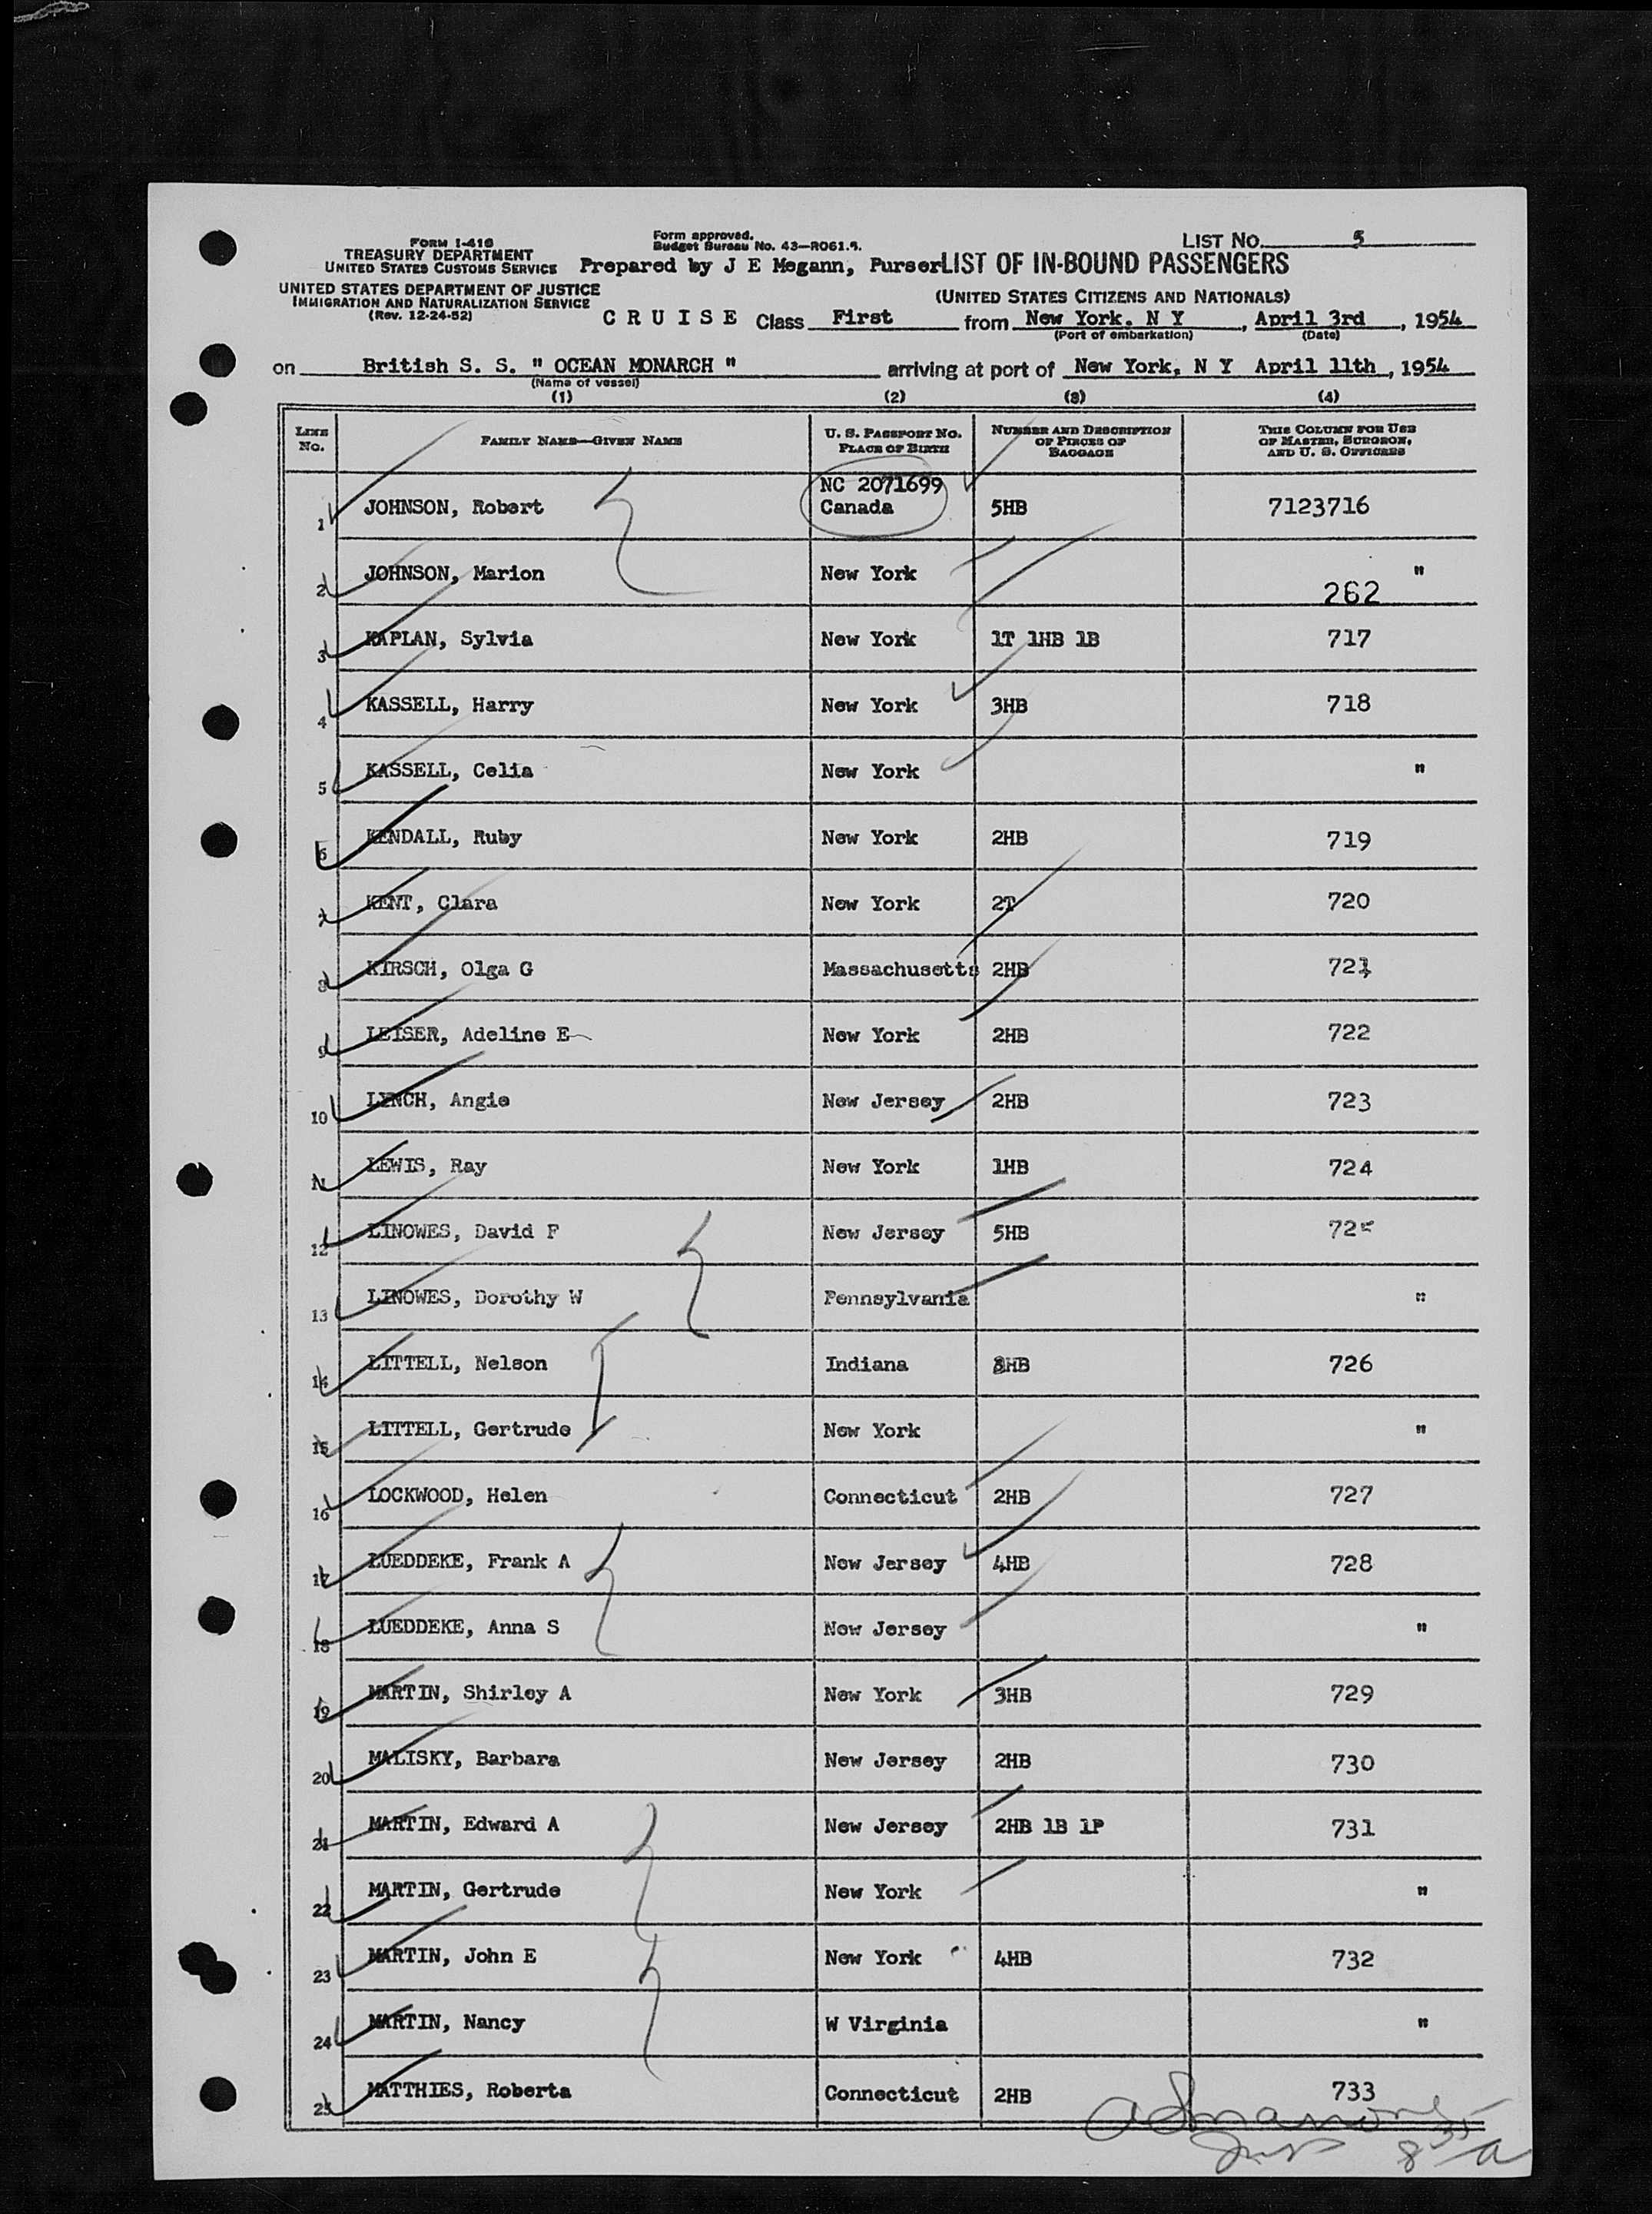 FORM I-416
TREASURY DEPARTMENT
UNITED STATES CUSTOMS SERVICE
UNITED STATES DEPARTMENT OF JUSTICE
IMMIGRATION AND NATURALIZATION SERVICE
(Rev. 12-24-52)
Form approved.
Budget Bureau No. 43—R061.4.
LIST NO. 5
Prepared by J E Megann, Purser LIST OF IN-BOUND PASSENGERS
(UNITED STATES CITIZENS AND NATIONALS)
C R U I S E Class First from New York. N Y, April 3rd, 1954
(Port of embarkation) (Date)
on British S. S. " OCEAN MONARCH " arriving at port of New York, N Y April 11th, 1954
(Name of vessel)
(1) (2) (3) (4)
LINE No. FAMILY NAME—GIVEN NAME U. S. PASSPORT NO. PLACE OF BIRTH NUMBER AND DESCRIPTION OF PIECES OF BAGGAGE THIS COLUMN FOR USE OF MASTER, SURGEON, AND U. S. OFFICERS
1 JOHNSON, Robert NC 2071699 Canada 5HB 7123716
2 JOHNSON, Marion New York "
262
3 KAPLAN, Sylvia New York 1T 1HB 1B 717
4 KASSELL, Harry New York 3HB 718
5 KASSELL, Celia New York "
6 KENDALL, Ruby New York 2HB 719
7 KENT, Clara New York 2T 720
8 KIRSCH, Olga G Massachusetts 2HB 721
9 LEISER, Adeline E New York 2HB 722
10 LYNCH, Angie New Jersey 2HB 723
11 LEWIS, Ray New York 1HB 724
12 LINOWES, David F New Jersey 5HB 725
13 LINOWES, Dorothy W Pennsylvania "
14 LITTELL, Nelson Indiana 3HB 726
15 LITTELL, Gertrude New York "
16 LOCKWOOD, Helen Connecticut 2HB 727
17 LUEDDEKE, Frank A New Jersey 4HB 728
18 LUEDDEKE, Anna S New Jersey "
19 MARTIN, Shirley A New York 3HB 729
20 MALISKY, Barbara New Jersey 2HB 730
21 MARTIN, Edward A New Jersey 2HB 1B 1P 731
22 MARTIN, Gertrude New York "
23 MARTIN, John E New York 4HB 732
24 MARTIN, Nancy W Virginia "
25 MATTHIES, Roberta Connecticut 2HB 733